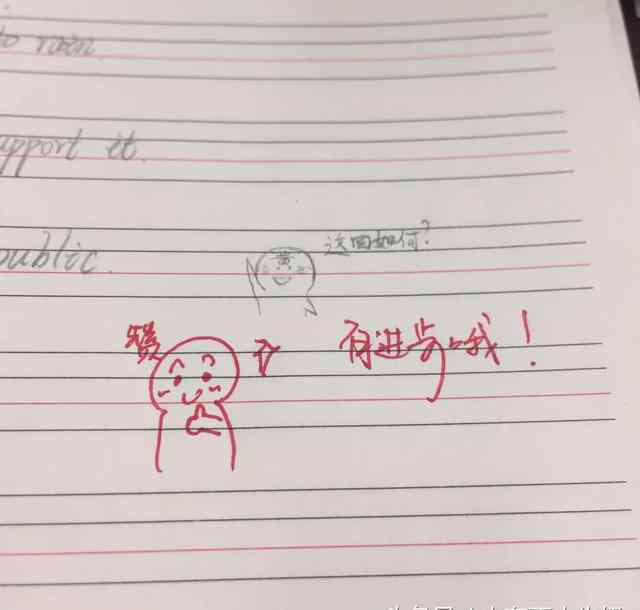 to rain.
support it.
public.
这回如何?
黄
赞
有进步哦!